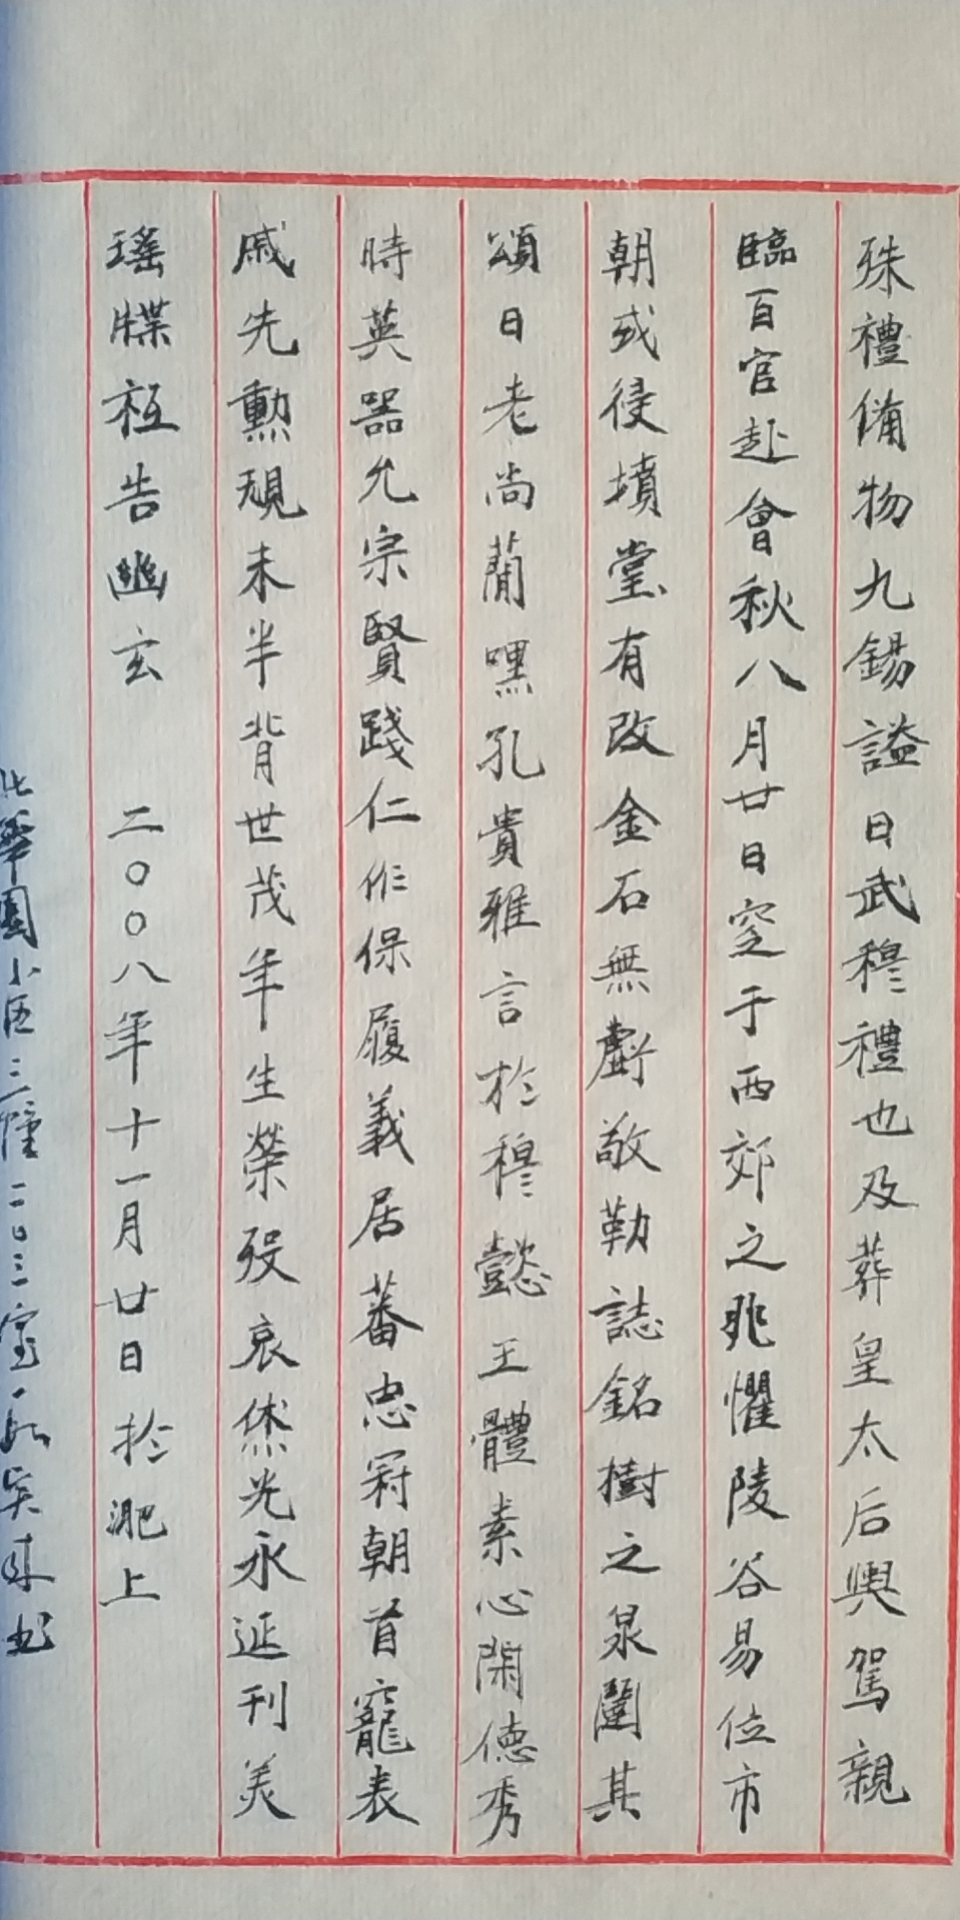 殊禮備物九錫謚曰武穆禮也及葬皇太后輿駕親
臨百官赴會秋八月廿日窆于西郊之兆懼陵谷易位市
朝或侵墳堂有改金石無虧敬勒誌銘樹之泉闥其
頌曰老尚簡嘿孔貴雅言於穆懿王體素心閑德秀
時英器允宗賢踐仁作保履義居蕃忠冠朝首寵表
戚先勳規未半背世茂年生榮歿哀休光永延刊美
瑤牒祗告幽玄 二〇〇八年十一月廿日於淝上
華園小區三幢二〇三室 吳 書